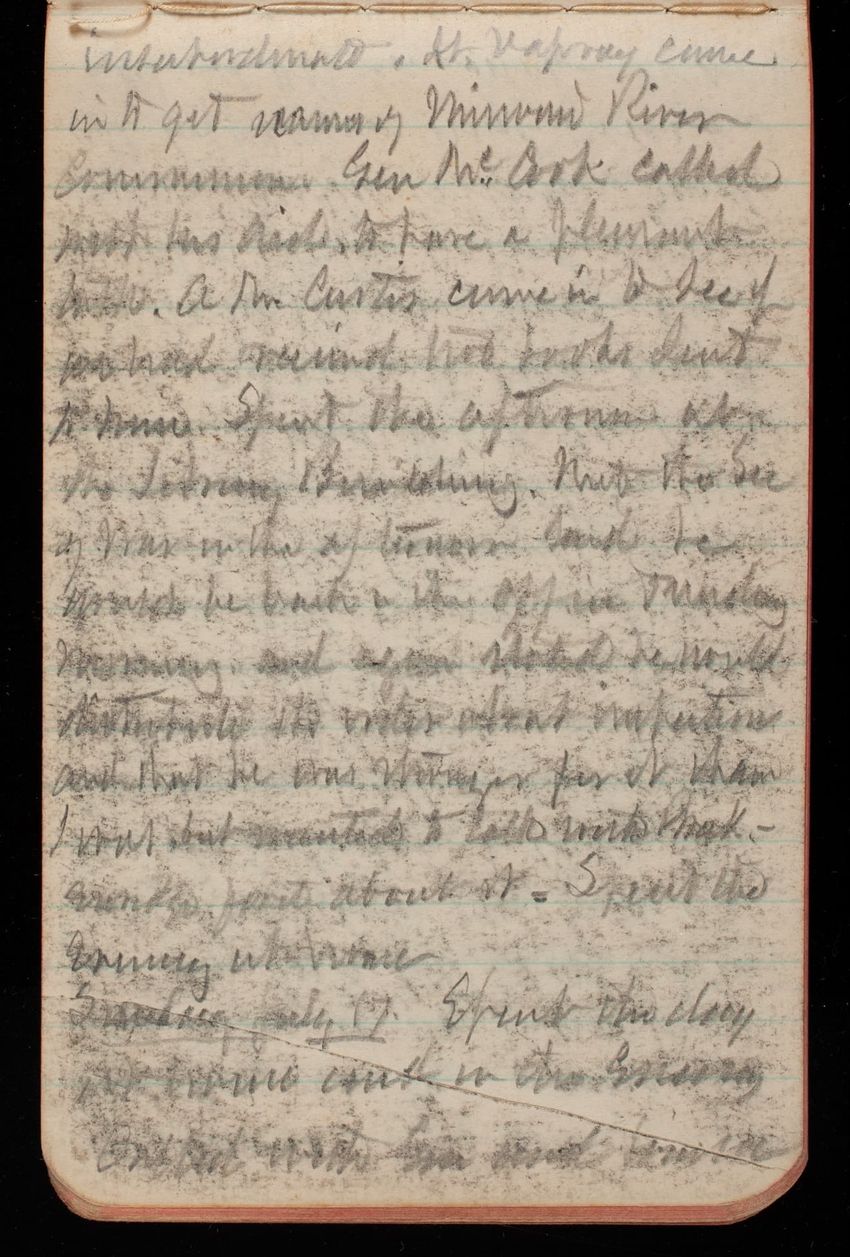 insubordinate. Lt. Vaproay came
in to get names of Missouri River
Commission. Gen Mc.Cook called
with his and to have a pleasant
talk. A Mr. Curtis came in to see if
we had received two books sent
to him. Spent the afternoon at
the Library Building. Met the Sec
of War in the afternoon said he
would be back in the office Monday
morning and again stated he would
the order about inspection
and that he was stronger for it than
I was but wanted to talk with
about it = Spent the
Evening at home
Sunday, July 17. Spent the day
at home and in the Evening
called with and